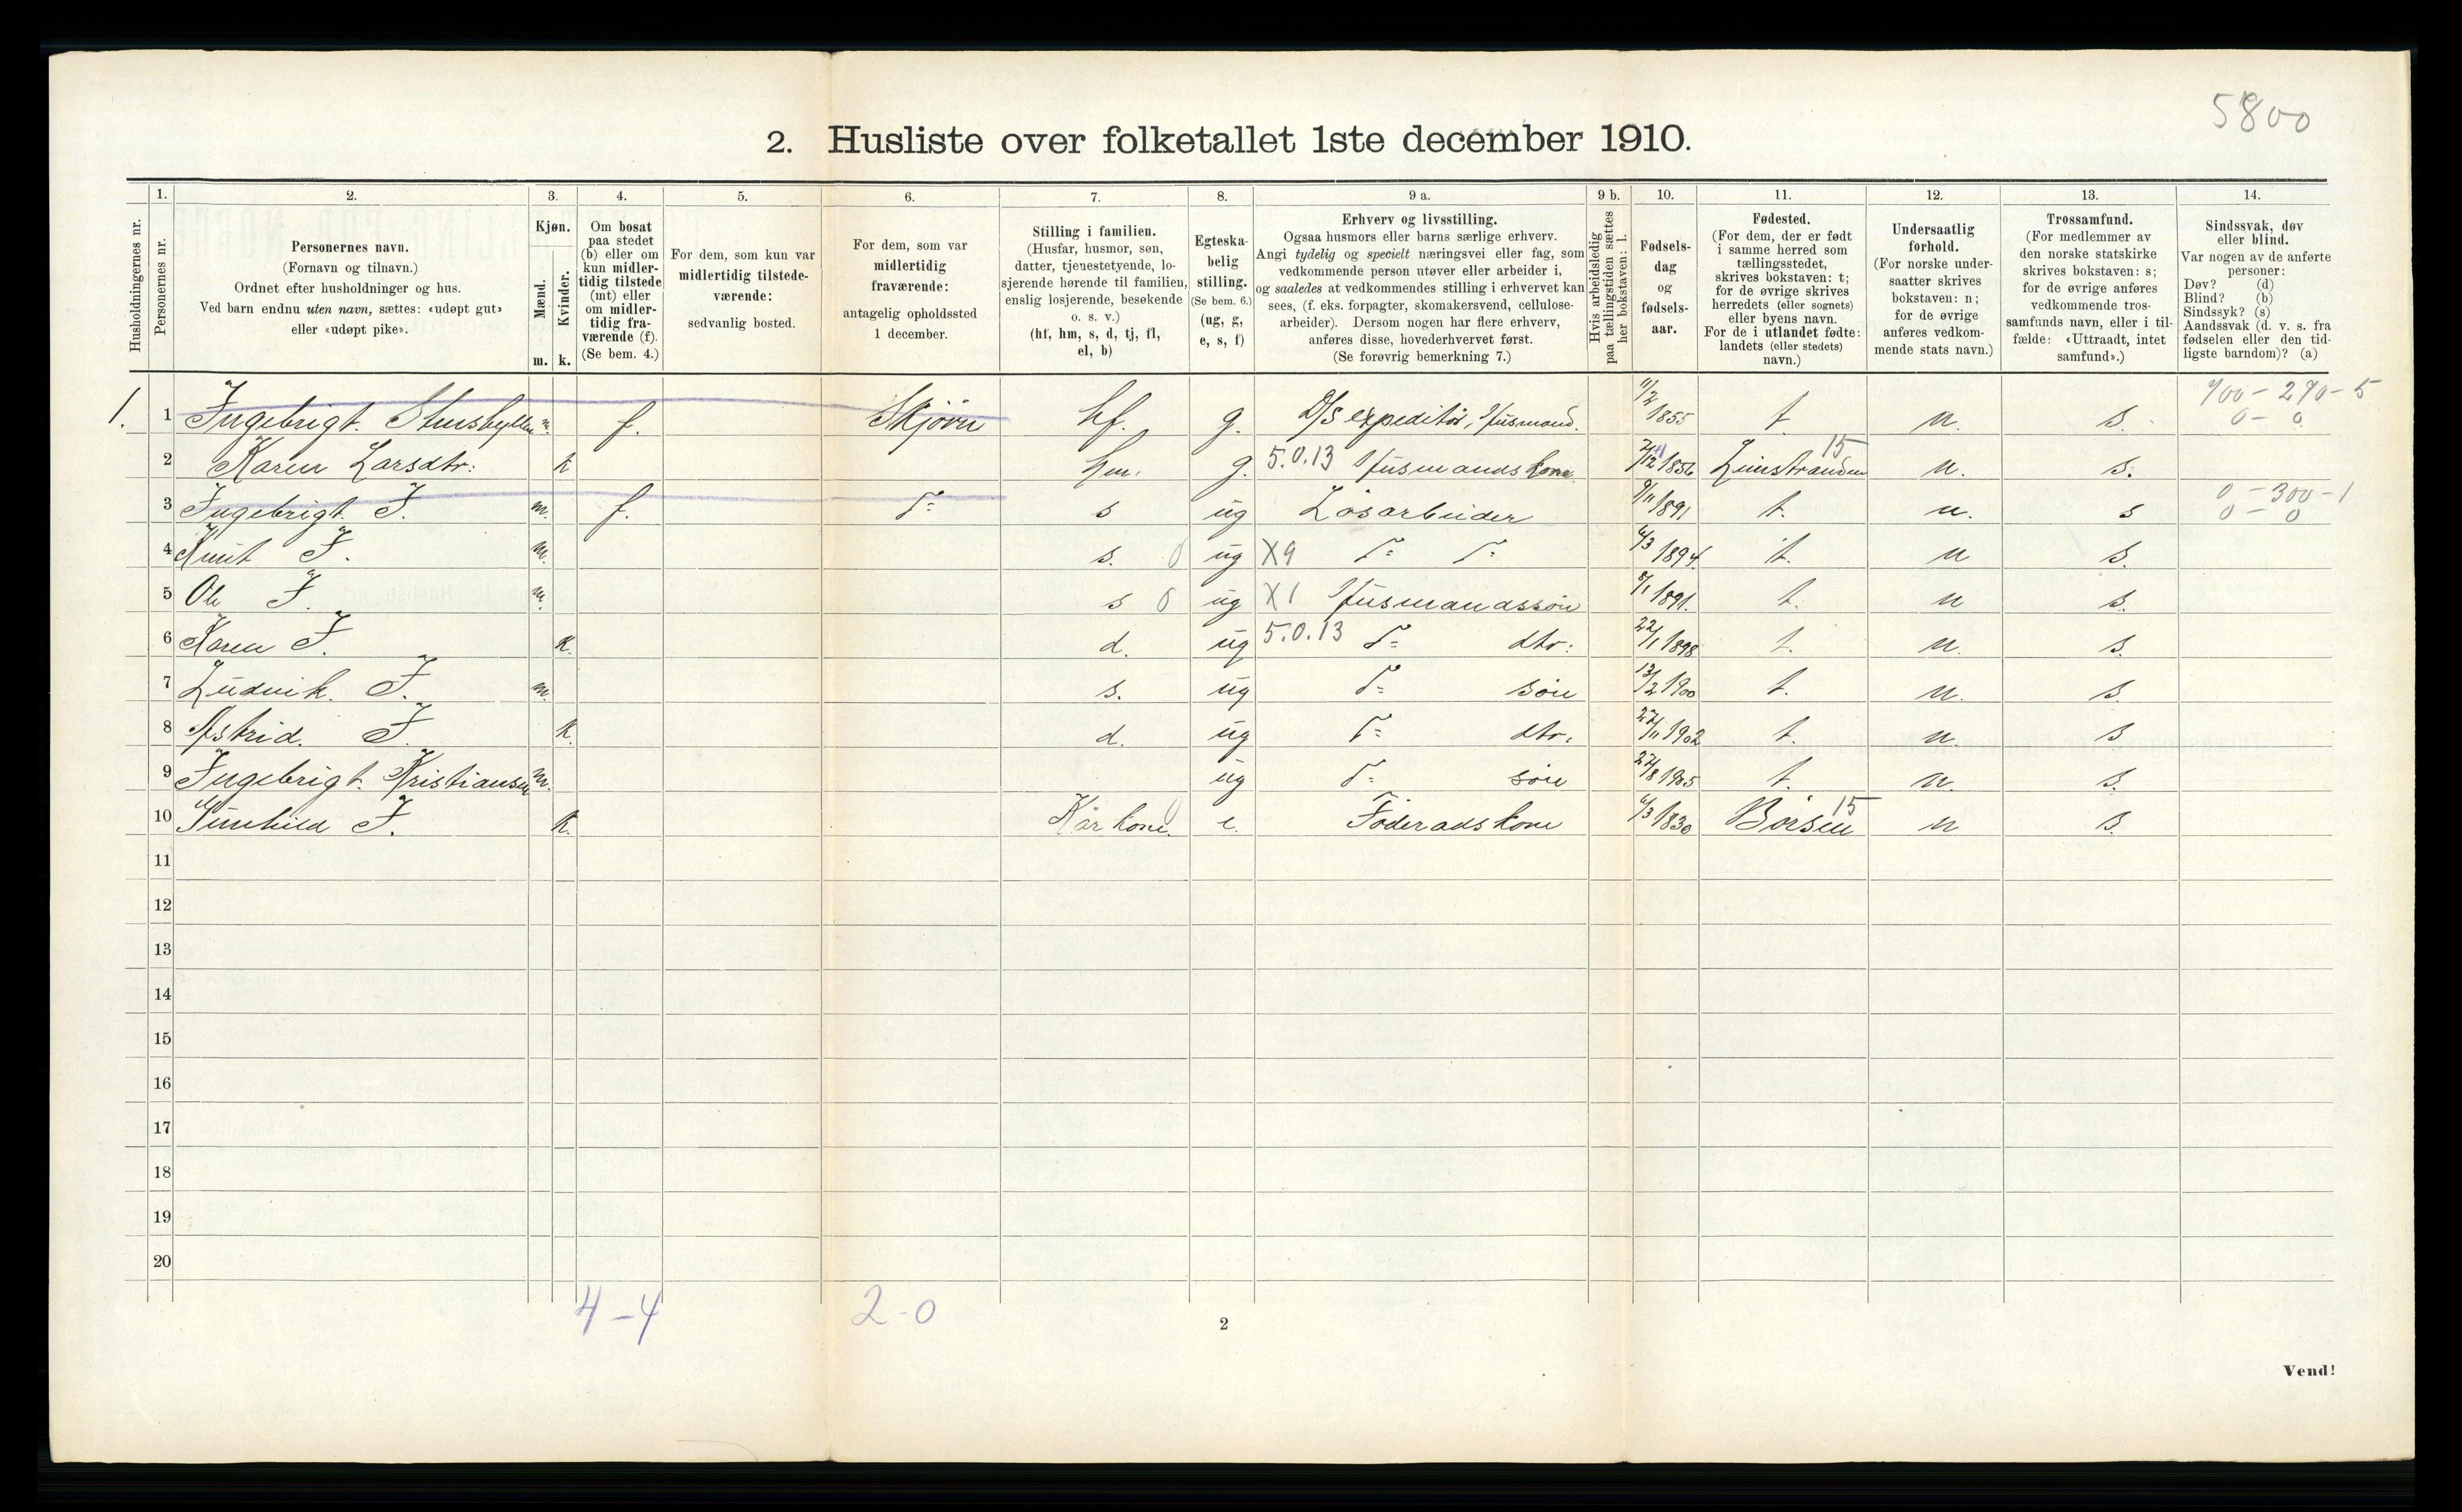 5800
2. Husliste over folketallet 1ste december 1910.
1. 2. 3. 4. 5. 6. 7. 8. 9 a. 9 b. 10. 11. 12. 13. 14.
Husholdningernes nr.
Personernes nr.
Personernes navn.
(Fornavn og tilnavn.)
Ordnet efter husholdninger og hus.
Ved barn endnu uten navn, sættes: «udøpt gut»
eller «udøpt pike».
Kjøn.
Mænd.
Kvinder.
m. k.
Om bosat
paa stedet
(b) eller om
kun midler-
tidig tilstede
(mt) eller
om midler-
tidig fra-
værende (f).
(Se bem. 4.)
For dem, som kun var
midlertidig tilstede-
værende:
sedvanlig bosted.
For dem, som var
midlertidig
fraværende:
antagelig opholdssted
1 december.
Stilling i familien.
(Husfar, husmor, søn,
datter, tjenestetyende, lo-
sjerende hørende til familien,
enslig losjerende, besøkende
o. s. v.)
(hf, hm, s, d, tj, fl,
el, b)
Egteska-
belig
stilling.
(Se bem. 6.)
(ug, g,
e, s, f)
Erhverv og livsstilling.
Ogsaa husmors eller barns særlige erhverv.
Angi tydelig og specielt næringsvei eller fag, som
vedkommende person utøver eller arbeider i,
og saaledes at vedkommendes stilling i erhvervet kan
sees, (f. eks. forpagter, skomakersvend, cellulose-
arbeider). Dersom nogen har flere erhverv,
anføres disse, hovederhvervet først.
(Se forøvrig bemerkning 7.)
Hvis arbeidsledig
paa tællingstiden sættes
her bokstaven: l.
Fødsels-
dag
og
fødsels-
aar.
Fødested.
(For dem, der er født
i samme herred som
tællingsstedet,
skrives bokstaven: t;
for de øvrige skrives
herredets (eller sognets)
eller byens navn.
For de i utlandet fødte:
landets (eller stedets)
navn.)
Undersaatlig
forhold.
(For norske under-
saatter skrives
bokstaven: n;
for de øvrige
anføres vedkom-
mende stats navn.)
Trossamfund.
(For medlemmer av
den norske statskirke
skrives bokstaven: s;
for de øvrige anføres
vedkommende tros-
samfunds navn, eller i til-
fælde: «Uttraadt, intet
samfund».)
Sindssvak, døv
eller blind.
Var nogen av de anførte
personer:
Døv? (d)
Blind? (b)
Sindssyk? (s)
Aandssvak (d. v. s. fra
fødselen eller den tid-
ligste barndom)? (a)
1. 1 Ingebrigt m. f. Skjørn hf. g. D/S expeditør, Husmand. 11/2 1855 t. n. s. 900 - 290 - 5 0 - 0
2 Karen Larsdtr: k hm. g. 5.0.13 Husmandskone 1856 15 n. s.
3 Ingebrigt I. m. f. T= s ug Løsarbeider 9/11 1891 t. n. s 0 - 300 - 1 0 - 0
4 Knut I. m. s. 0 ug X9 T= T= 6/3 1894. t. n s.
5 Ole I. m. s 0 ug X1 Husmandssøn 8/1 1891. t. n s.
6 Karen I. k. d. ug 5.0.13 T= dtr: 22/1 1898 t. n. s.
7 Ludvik. I. m. s. ug T= søn 13/2 1900 t. n. s.
8 Astrid. I. k. d. ug T= dtr. 27/11 1902 t. n. s
9 Ingebrigt. Kristiansen m. ug T= søn 27/8 1905 t. n. s.
10 Gunhild I. k. Kårkone. e. Føderadskone 6/3 1830 Børsen 15 n s.
11
12
13
14
15
16
17
18
19
20
4 - 4 2 - 0
2
Vend!